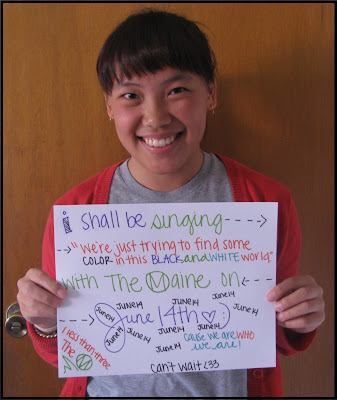 i shall be singing
"we're just trying to find some
COLOR in this BLACK and WHITE world"
with The Maine on
June 14th ♡ :)
June14 June14 June14
June14 June14
June14 June14 June14
June14 June14
cause we are who
we are!
I less than three
The M
can't wait <33